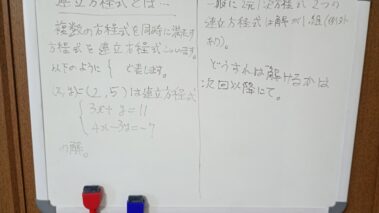 連立方程式とは…
複数の方程式を同時に満たす
方程式を連立方程式といいます。
以下のように { で表します。
(x, y) = (2, 5) は連立方程式
{ 3x + y = 11
4x - 3y = -7
の解。
一般に2元1次方程式 2つの
連立方程式は解が1組(例外
あり)。
どうすれば解けるかは
次回以降にて。